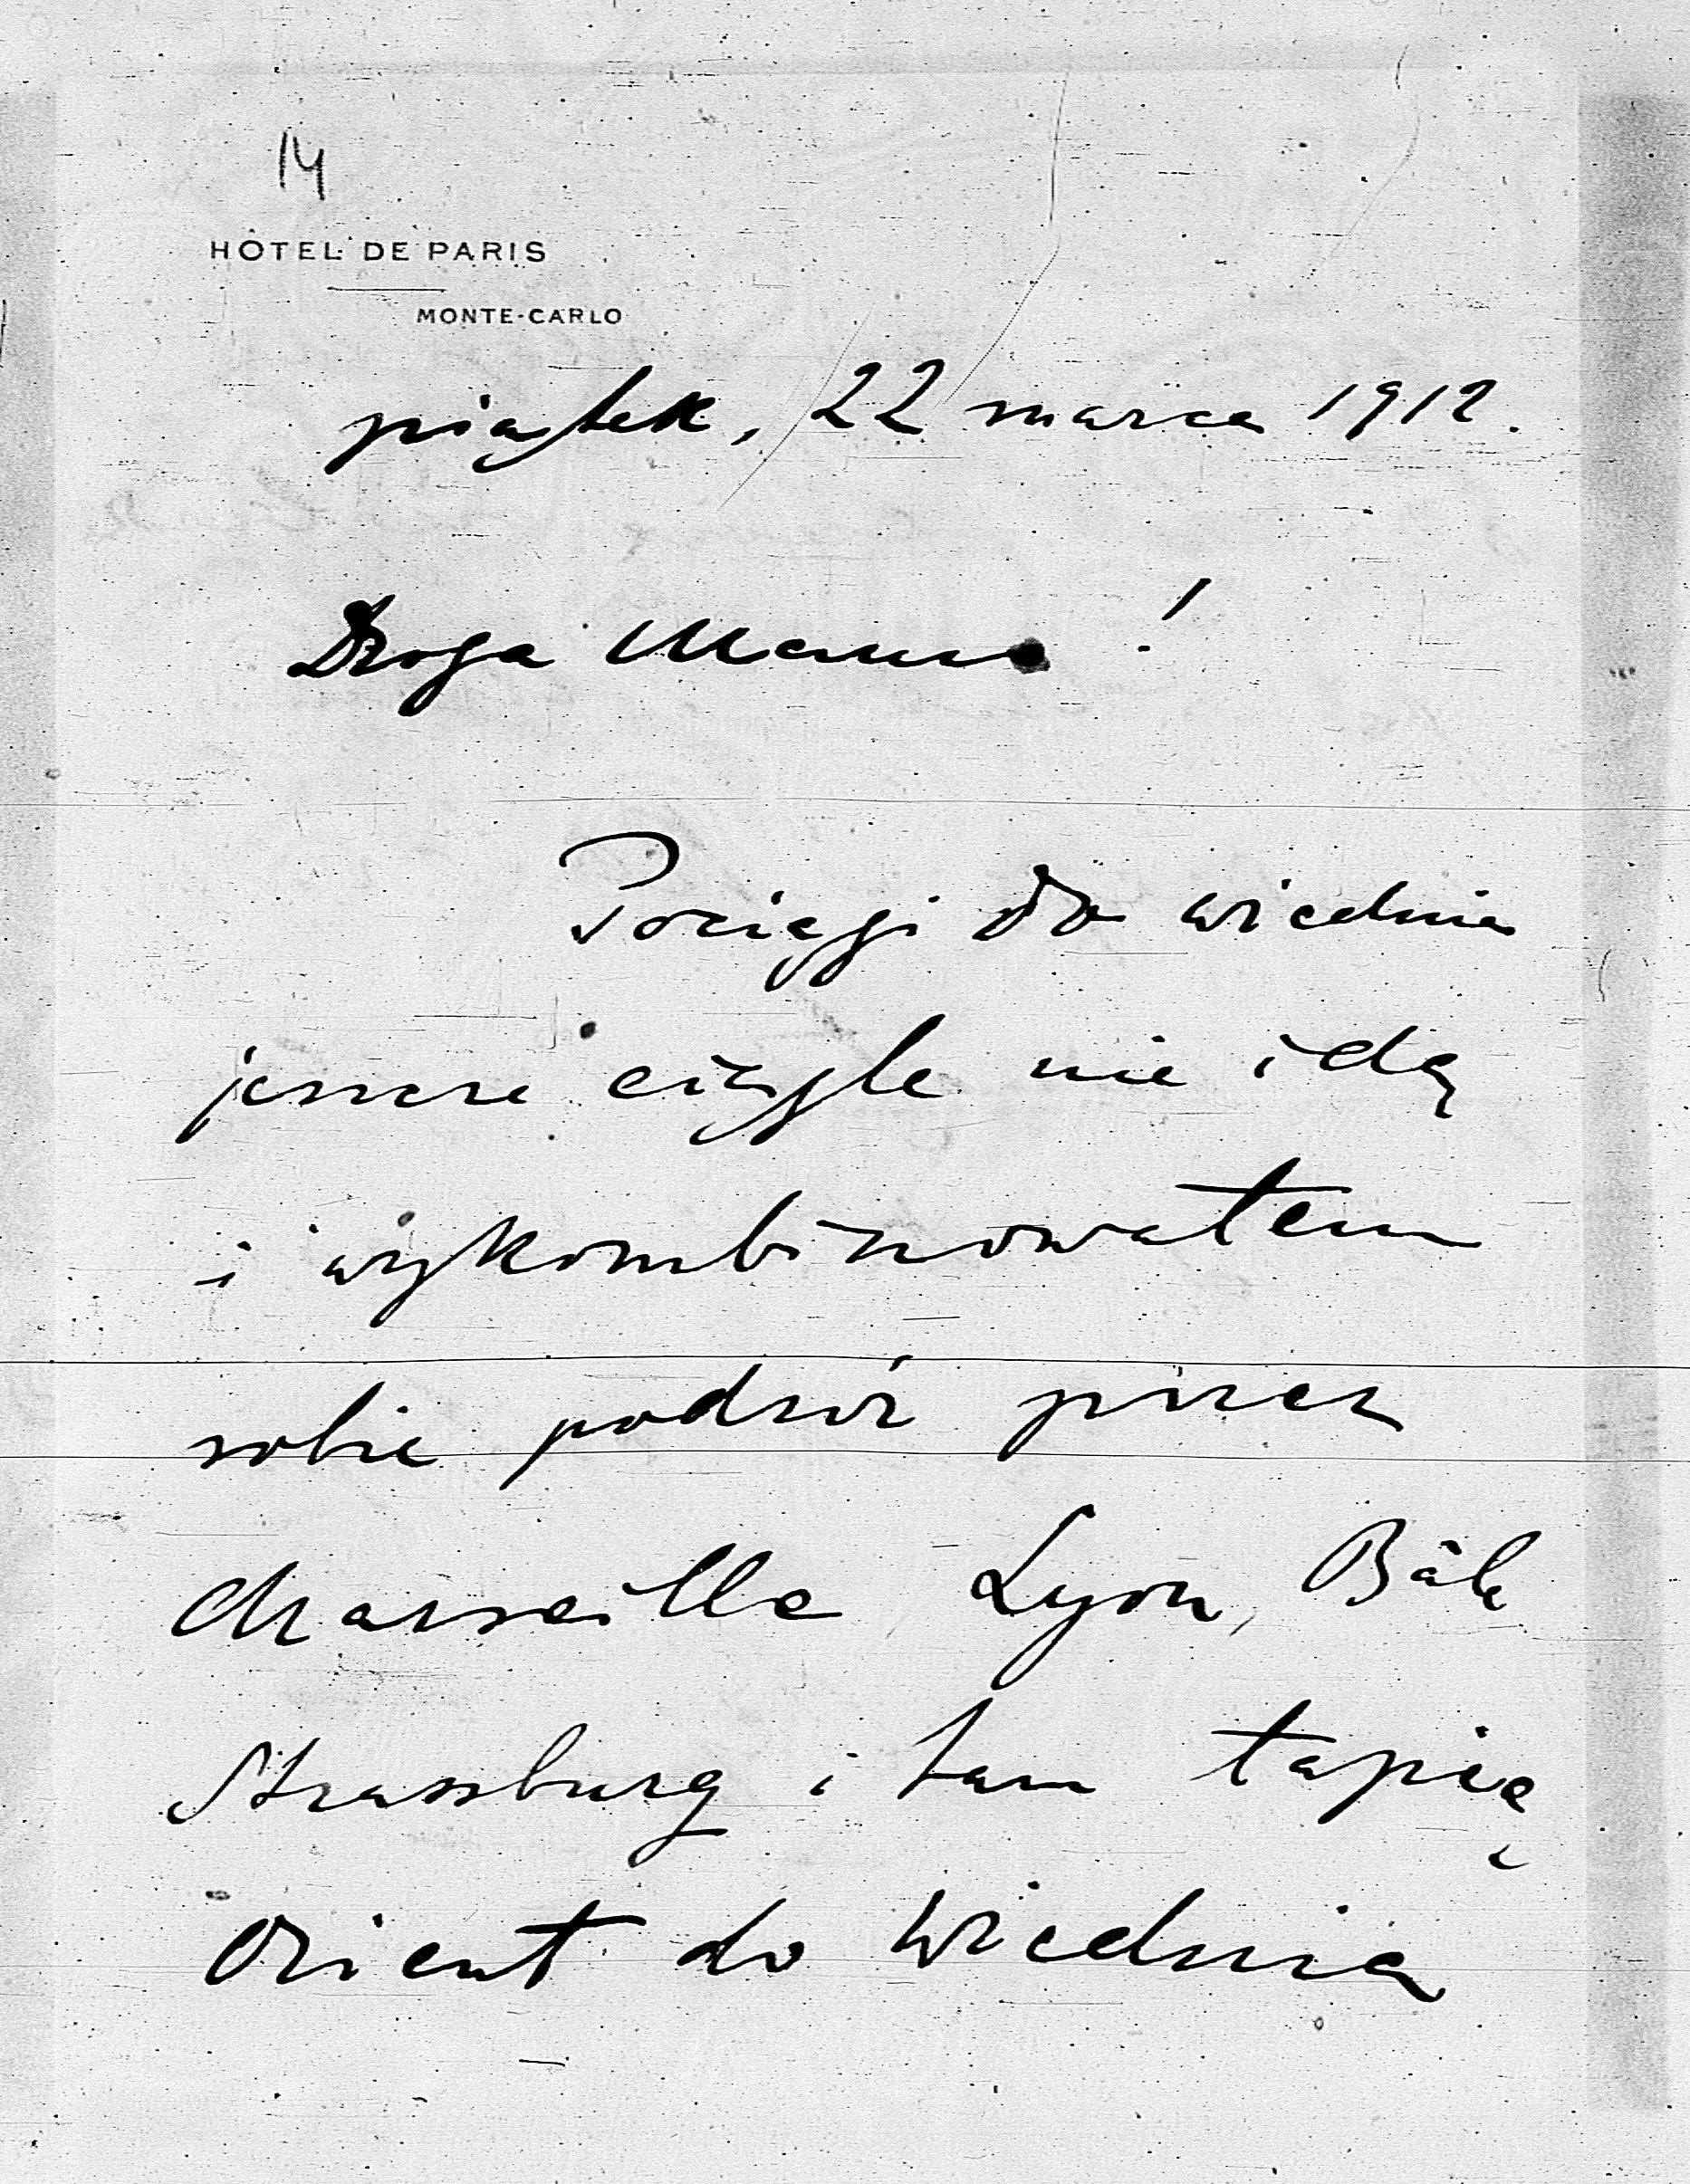 14
HÔTEL DE PARIS
MONTE-CARLO
piątek, 22 marca 1912.
Droga Mamo !
Pociągi do Wiednia
jeszcze ciągle nie idą
i wykombinowałem
sobie podróż przez
Marseille Lyon, Bâle
Strassburg i tam łapię
Orient do Wiednia